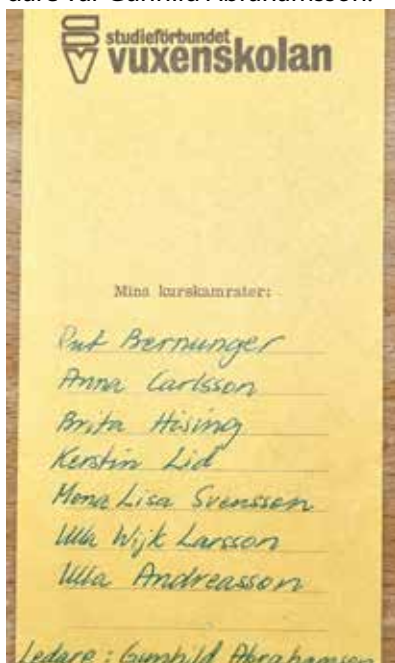 studieförbundet
vuxenskolan
Mina kurskamrater:
Rut Bernunger
Anna Carlsson
Brita Hising
Kerstin Lid
Mona Lisa Svensson
Ulla Wijk Larsson
Ulla Andreasson
Ledare: Gunhild Abrahamsson